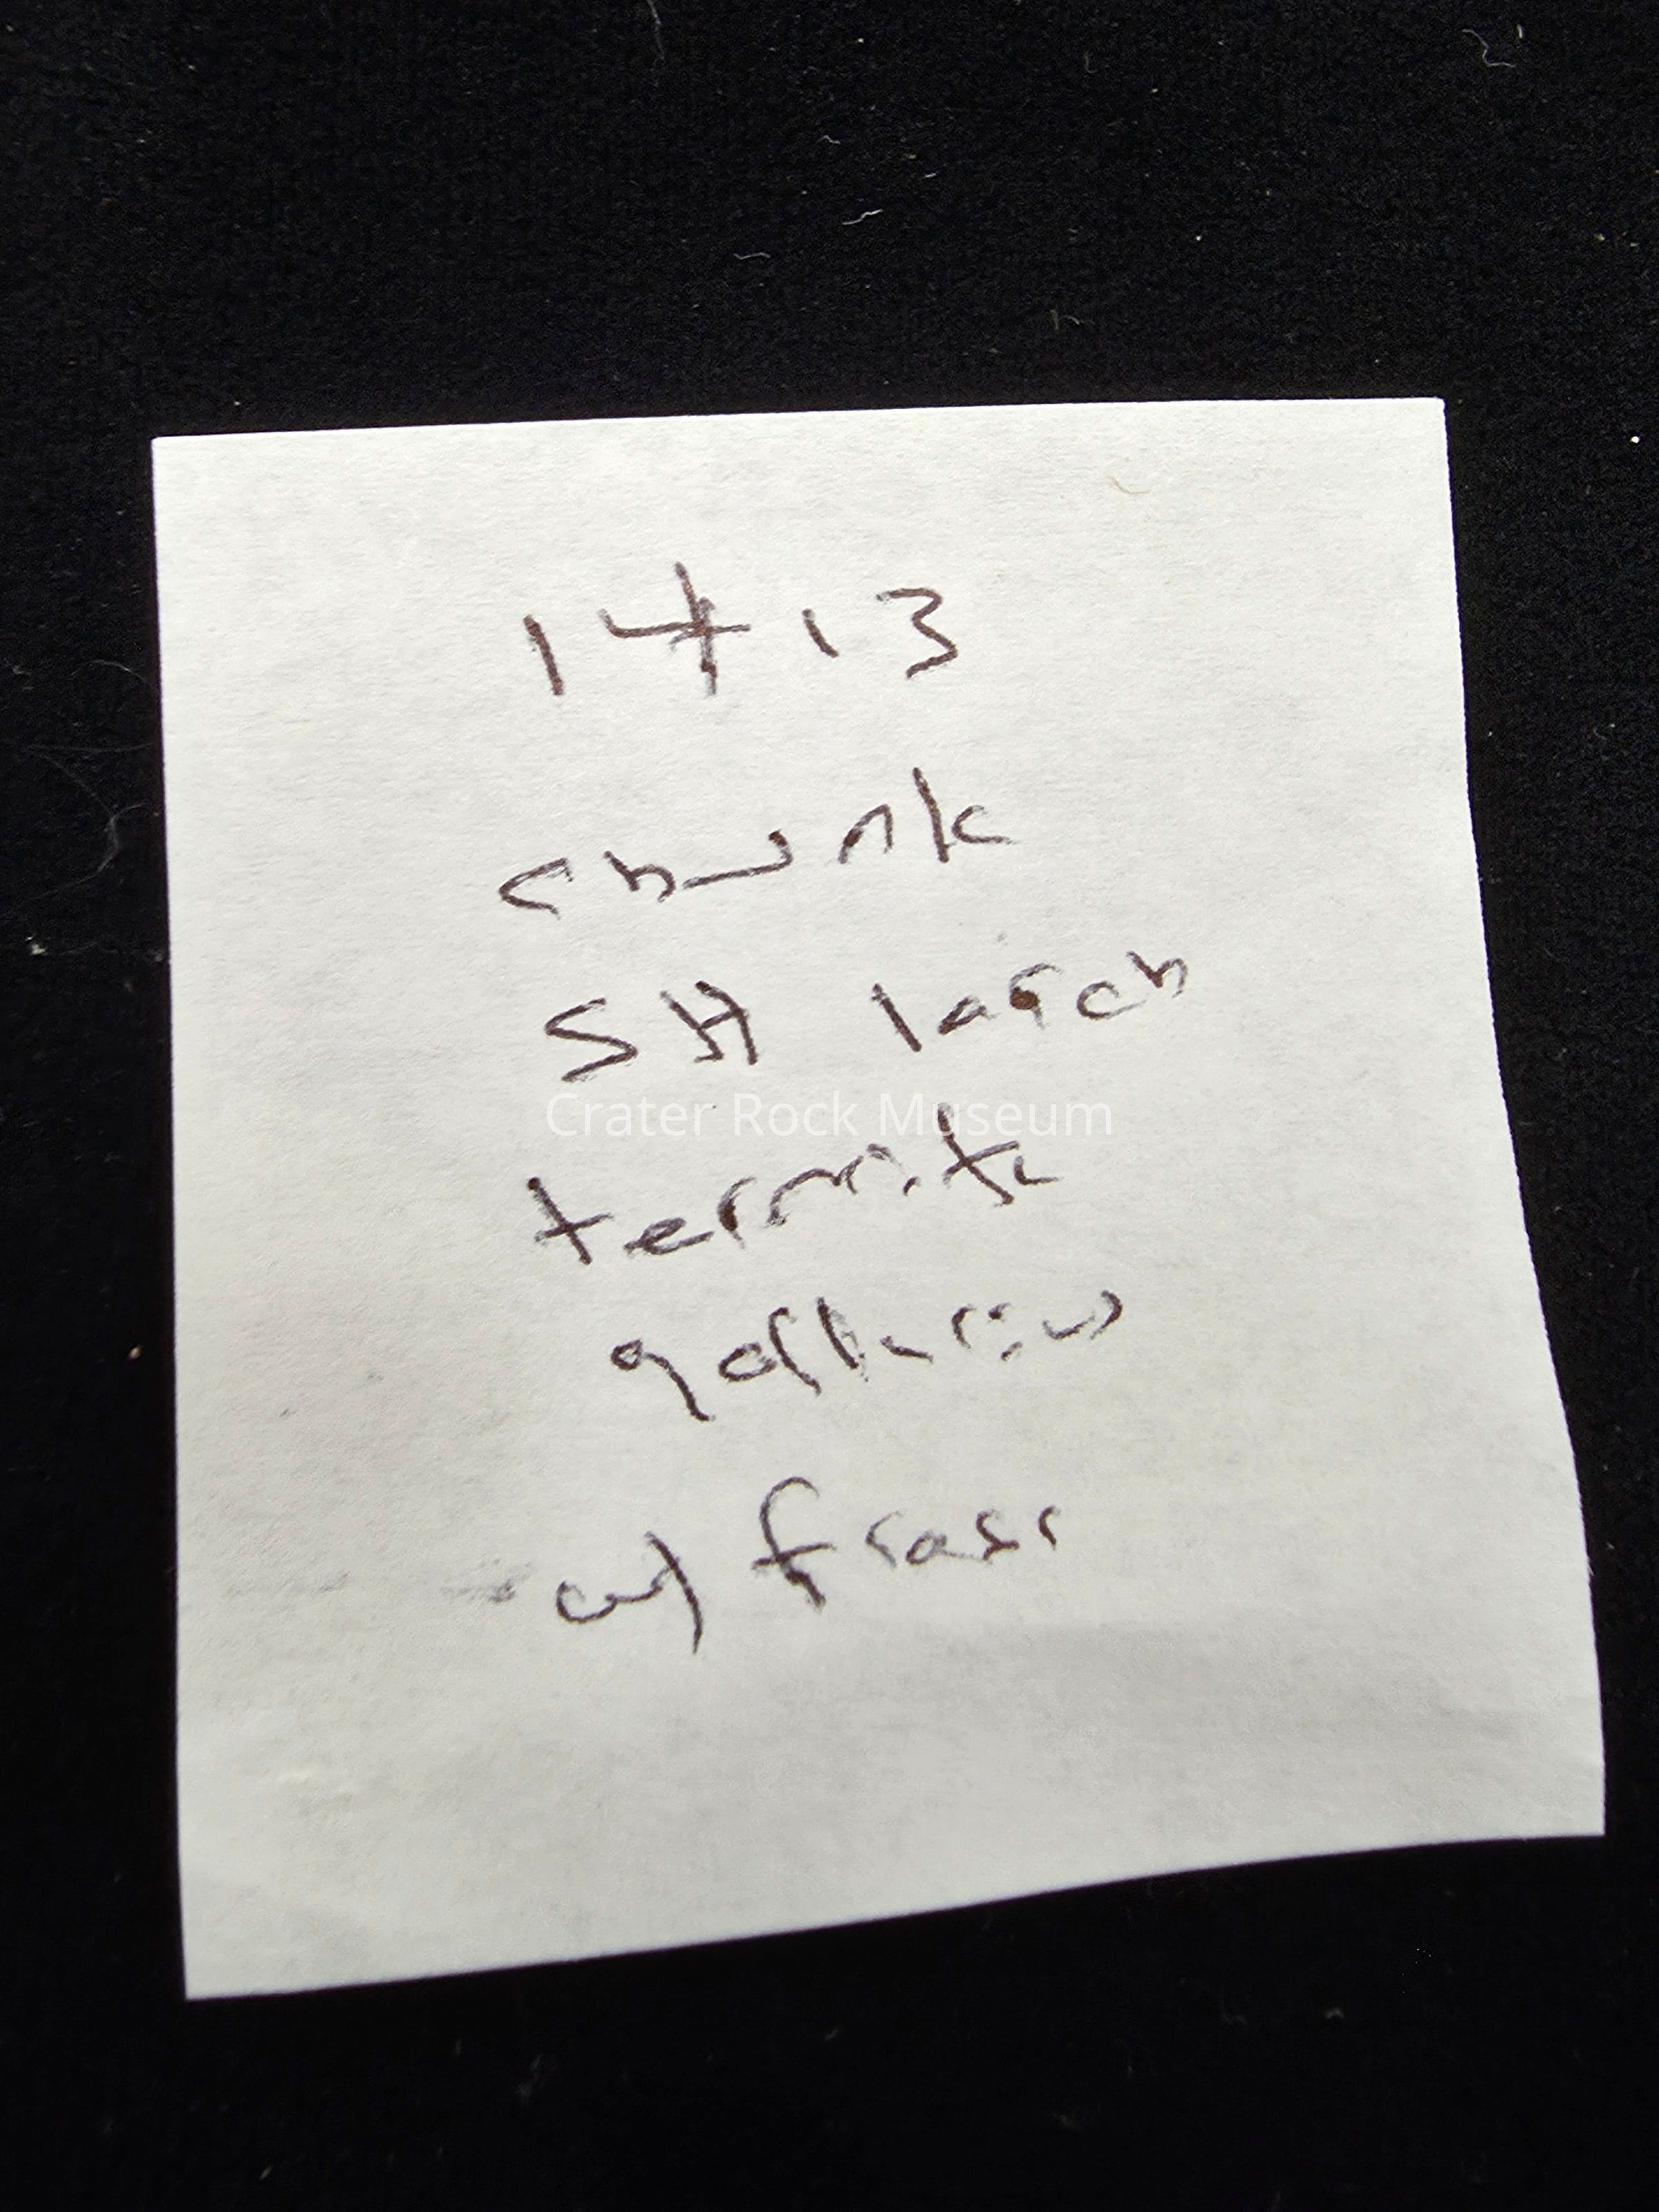 1413
chunk
SH larch
Crater Rock Museum
termite
galleries
w/ frass